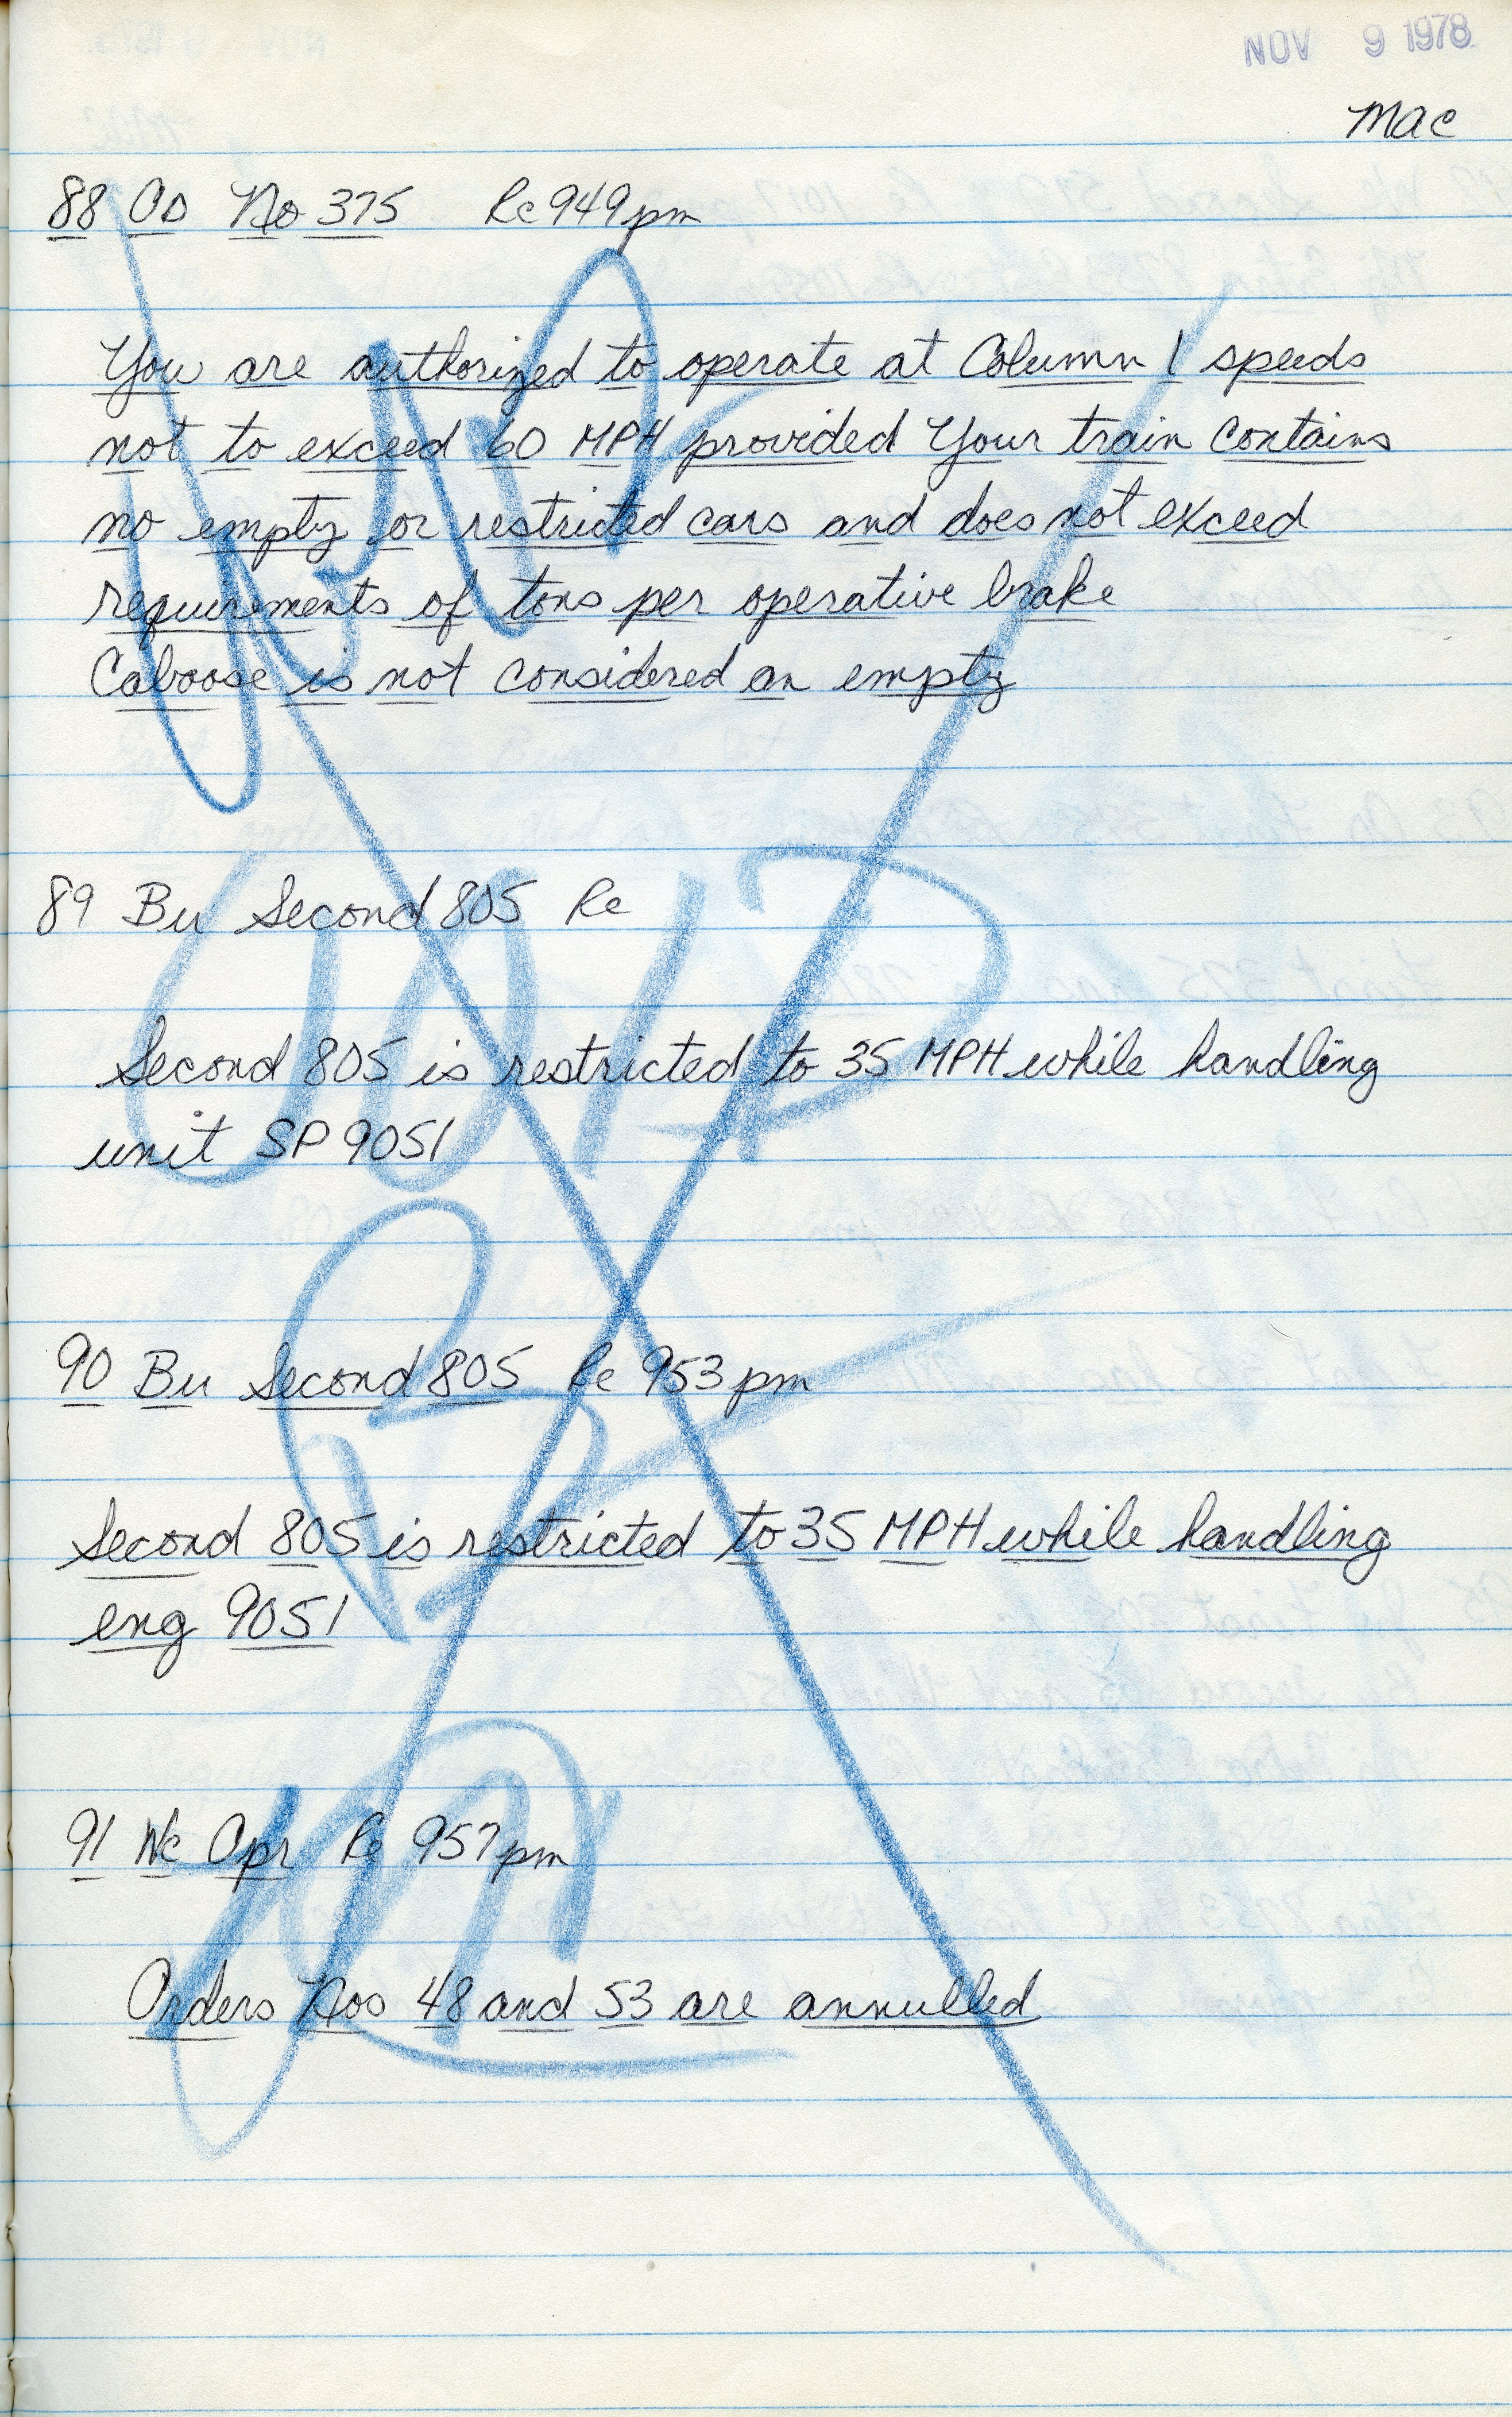 NOV 9 1978
MAC
88 Co No 375 Rc 949pm
You are authorized to operate at Column 1 speeds
not to exceed 60 MPH provided Your train contains
no empty or restricted cars and does not exceed
requirements of tons per operative brake
Caboose is not considered an empty
89 Bu Second 805 Rc
VOID
Second 805 is restricted to 35 MPH while handling
unit SP 9051
90 Bu Second 805 Rc 953pm
Second 805 is restricted to 35 MPH while handling
eng 9051
91 Nc Opr Rc 957pm
Orders Nos 48 and 53 are annulled